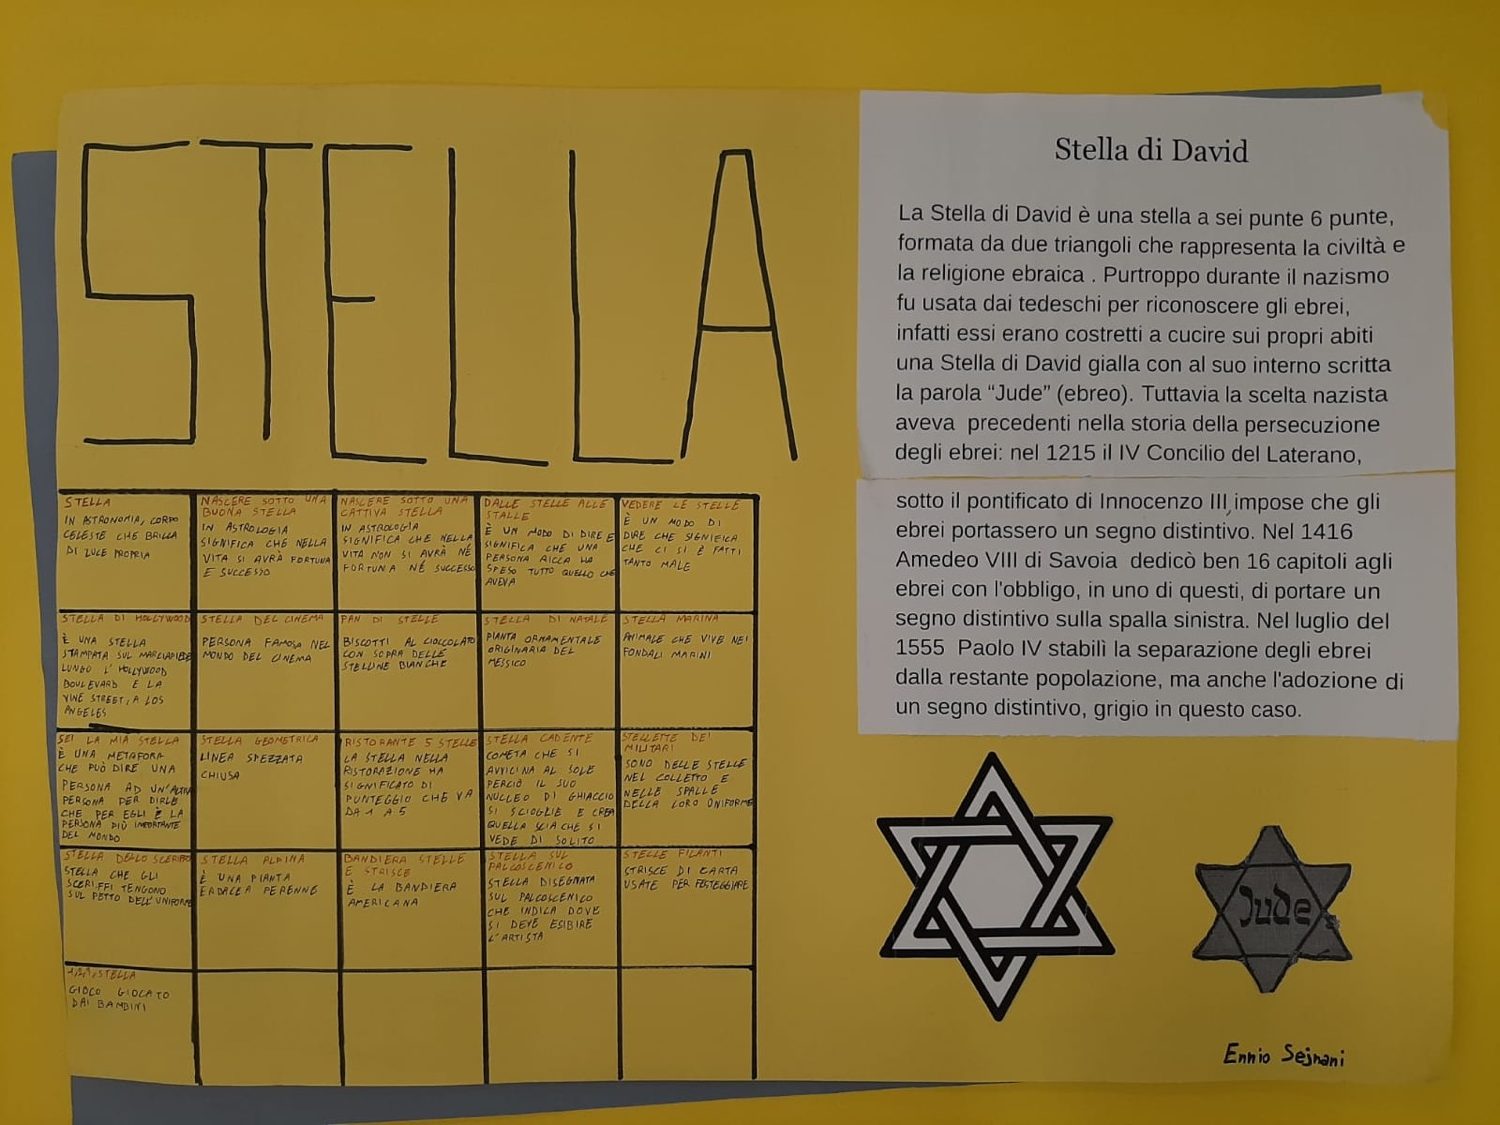 STELLA
STELLA
IN ASTRONOMIA, CORPO
CELESTE CHE BRILLA
DI LUCE PROPRIA
NASCERE SOTTO UNA
BUONA STELLA
IN ASTROLOGIA
SIGNIFICA CHE NELLA
VITA SI AVRÀ FORTUNA
E SUCCESSO
NASCERE SOTTO UNA
CATTIVA STELLA
IN ASTROLOGIA
SIGNIFICA CHE NELLA
VITA NON SI AVRÀ NÉ
FORTUNA NÉ SUCCESSO
DALLE STELLE ALLE
STALLE
È UN MODO DI DIRE E
SIGNIFICA CHE UNA
PERSONA RICCA HA
SPESO TUTTO QUELLO CHE
AVEVA
VEDERE LE STELLE
È UN MODO DI
DIRE CHE SIGNIFICA
CHE CI SI È FATTI
TANTO MALE
STELLA DI HOLLYWOOD
È UNA STELLA
STAMPATA SUL MARCIAPIEDE
LUNGO L'HOLLYWOOD
BOULEVARD E LA
VINE STREET, A LOS
ANGELES
STELLA DEL CINEMA
PERSONA FAMOSA NEL
MONDO DEL CINEMA
PAN DI STELLE
BISCOTTI AL CIOCCOLATO
CON SOPRA DELLE
STELLINE BIANCHE
STELLA DI NATALE
PIANTA ORNAMENTALE
ORIGINARIA DEL
MESSICO
STELLA MARINA
ANIMALE CHE VIVE NEI
FONDALI MARINI
SEI LA MIA STELLA
È UNA METAFORA
CHE PUÒ DIRE UNA
PERSONA AD UN'ALTRA
PERSONA PER DIRLE
CHE PER EGLI È LA
PERSONA PIÙ IMPORTANTE
DEL MONDO
STELLA GEOMETRICA
LINEA SPEZZATA
CHIUSA
RISTORANTE 5 STELLE
LA STELLA NELLA
RISTORAZIONE HA
SIGNIFICATO DI
PUNTEGGIO CHE VA
DA 1 A 5
STELLA CADENTE
COMETA CHE SI
AVVICINA AL SOLE
PERCIÒ IL SUO
NUCLEO DI GHIACCIO
SI SCIOGLIE E CREA
QUELLA SCIA CHE SI
VEDE DI SOLITO
STELLETTE DEI
MILITARI
SONO DELLE STELLE
NEL COLLETTO E
NELLE SPALLE
DELLA LORO UNIFORME
STELLA DELLO SCERIFFO
STELLA CHE GLI
SCERIFFI TENGONO
SUL PETTO DELL'UNIFORME
STELLA ALPINA
È UNA PIANTA
ERBACEA PERENNE
BANDIERA STELLE
E STRISCE
È LA BANDIERA
AMERICANA
STELLA SUL
PALCOSCENICO
STELLA DISEGNATA
SUL PALCOSCENICO
CHE INDICA DOVE
SI DEVE ESIBIRE
L'ARTISTA
STELLE FILANTI
STRISCE DI CARTA
USATE PER FESTEGGIARE
STELLA
GIOCO GIOCATO
DAI BAMBINI
Stella di David
La Stella di David è una stella a sei punte 6 punte,
formata da due triangoli che rappresenta la civiltà e
la religione ebraica . Purtroppo durante il nazismo
fu usata dai tedeschi per riconoscere gli ebrei,
infatti essi erano costretti a cucire sui propri abiti
una Stella di David gialla con al suo interno scritta
la parola “Jude” (ebreo). Tuttavia la scelta nazista
aveva precedenti nella storia della persecuzione
degli ebrei: nel 1215 il IV Concilio del Laterano,
sotto il pontificato di Innocenzo III, impose che gli
ebrei portassero un segno distintivo. Nel 1416
Amedeo VIII di Savoia dedicò ben 16 capitoli agli
ebrei con l'obbligo, in uno di questi, di portare un
segno distintivo sulla spalla sinistra. Nel luglio del
1555 Paolo IV stabilì la separazione degli ebrei
dalla restante popolazione, ma anche l'adozione di
un segno distintivo, grigio in questo caso.
Jude
Ennio Sejnani